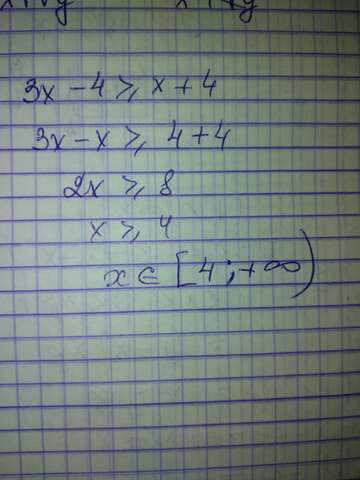 3x - 4 ⩾ x + 4
3x - x ⩾ 4 + 4
2x ⩾ 8
x ⩾ 4
x ∈ [4; +∞)